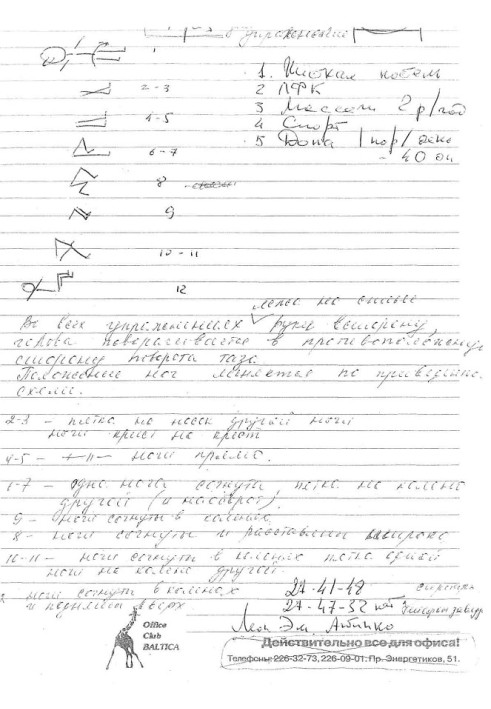 упражнения
1
1. Жесткая постель
2-3
2 ЛФК
3 Массаж 2 р/год
4-5
4 Спорт
5 Дона 1 пор/
6-7
- 40
8
9
10-11
12
лежа на спине
Во всех упражнениях руки в сторону,
голова поворачивается в противоположную
сторону поворота таза.
Положение ног меняется по
схеме.
2-3 - пятка на носок другой ноги
ноги крест на крест
4-5 - -"- ноги прямо.
6-7 - одна нога согнута, пятка на колено
другой (и наоборот)
9 - ноги согнуты в коленях
8 - ноги согнуты и расставлены широко
10-11 - ноги согнуты в коленях пятка одной
ноги на колено другой.
ноги согнуты в коленях
и подняты вверх
27-41-48
27-47-32
Office
Club
BALTICA
Действительно все для офиса!
Телефоны: 226-32-73, 226-09-01. Пр. Энергетиков, 51.